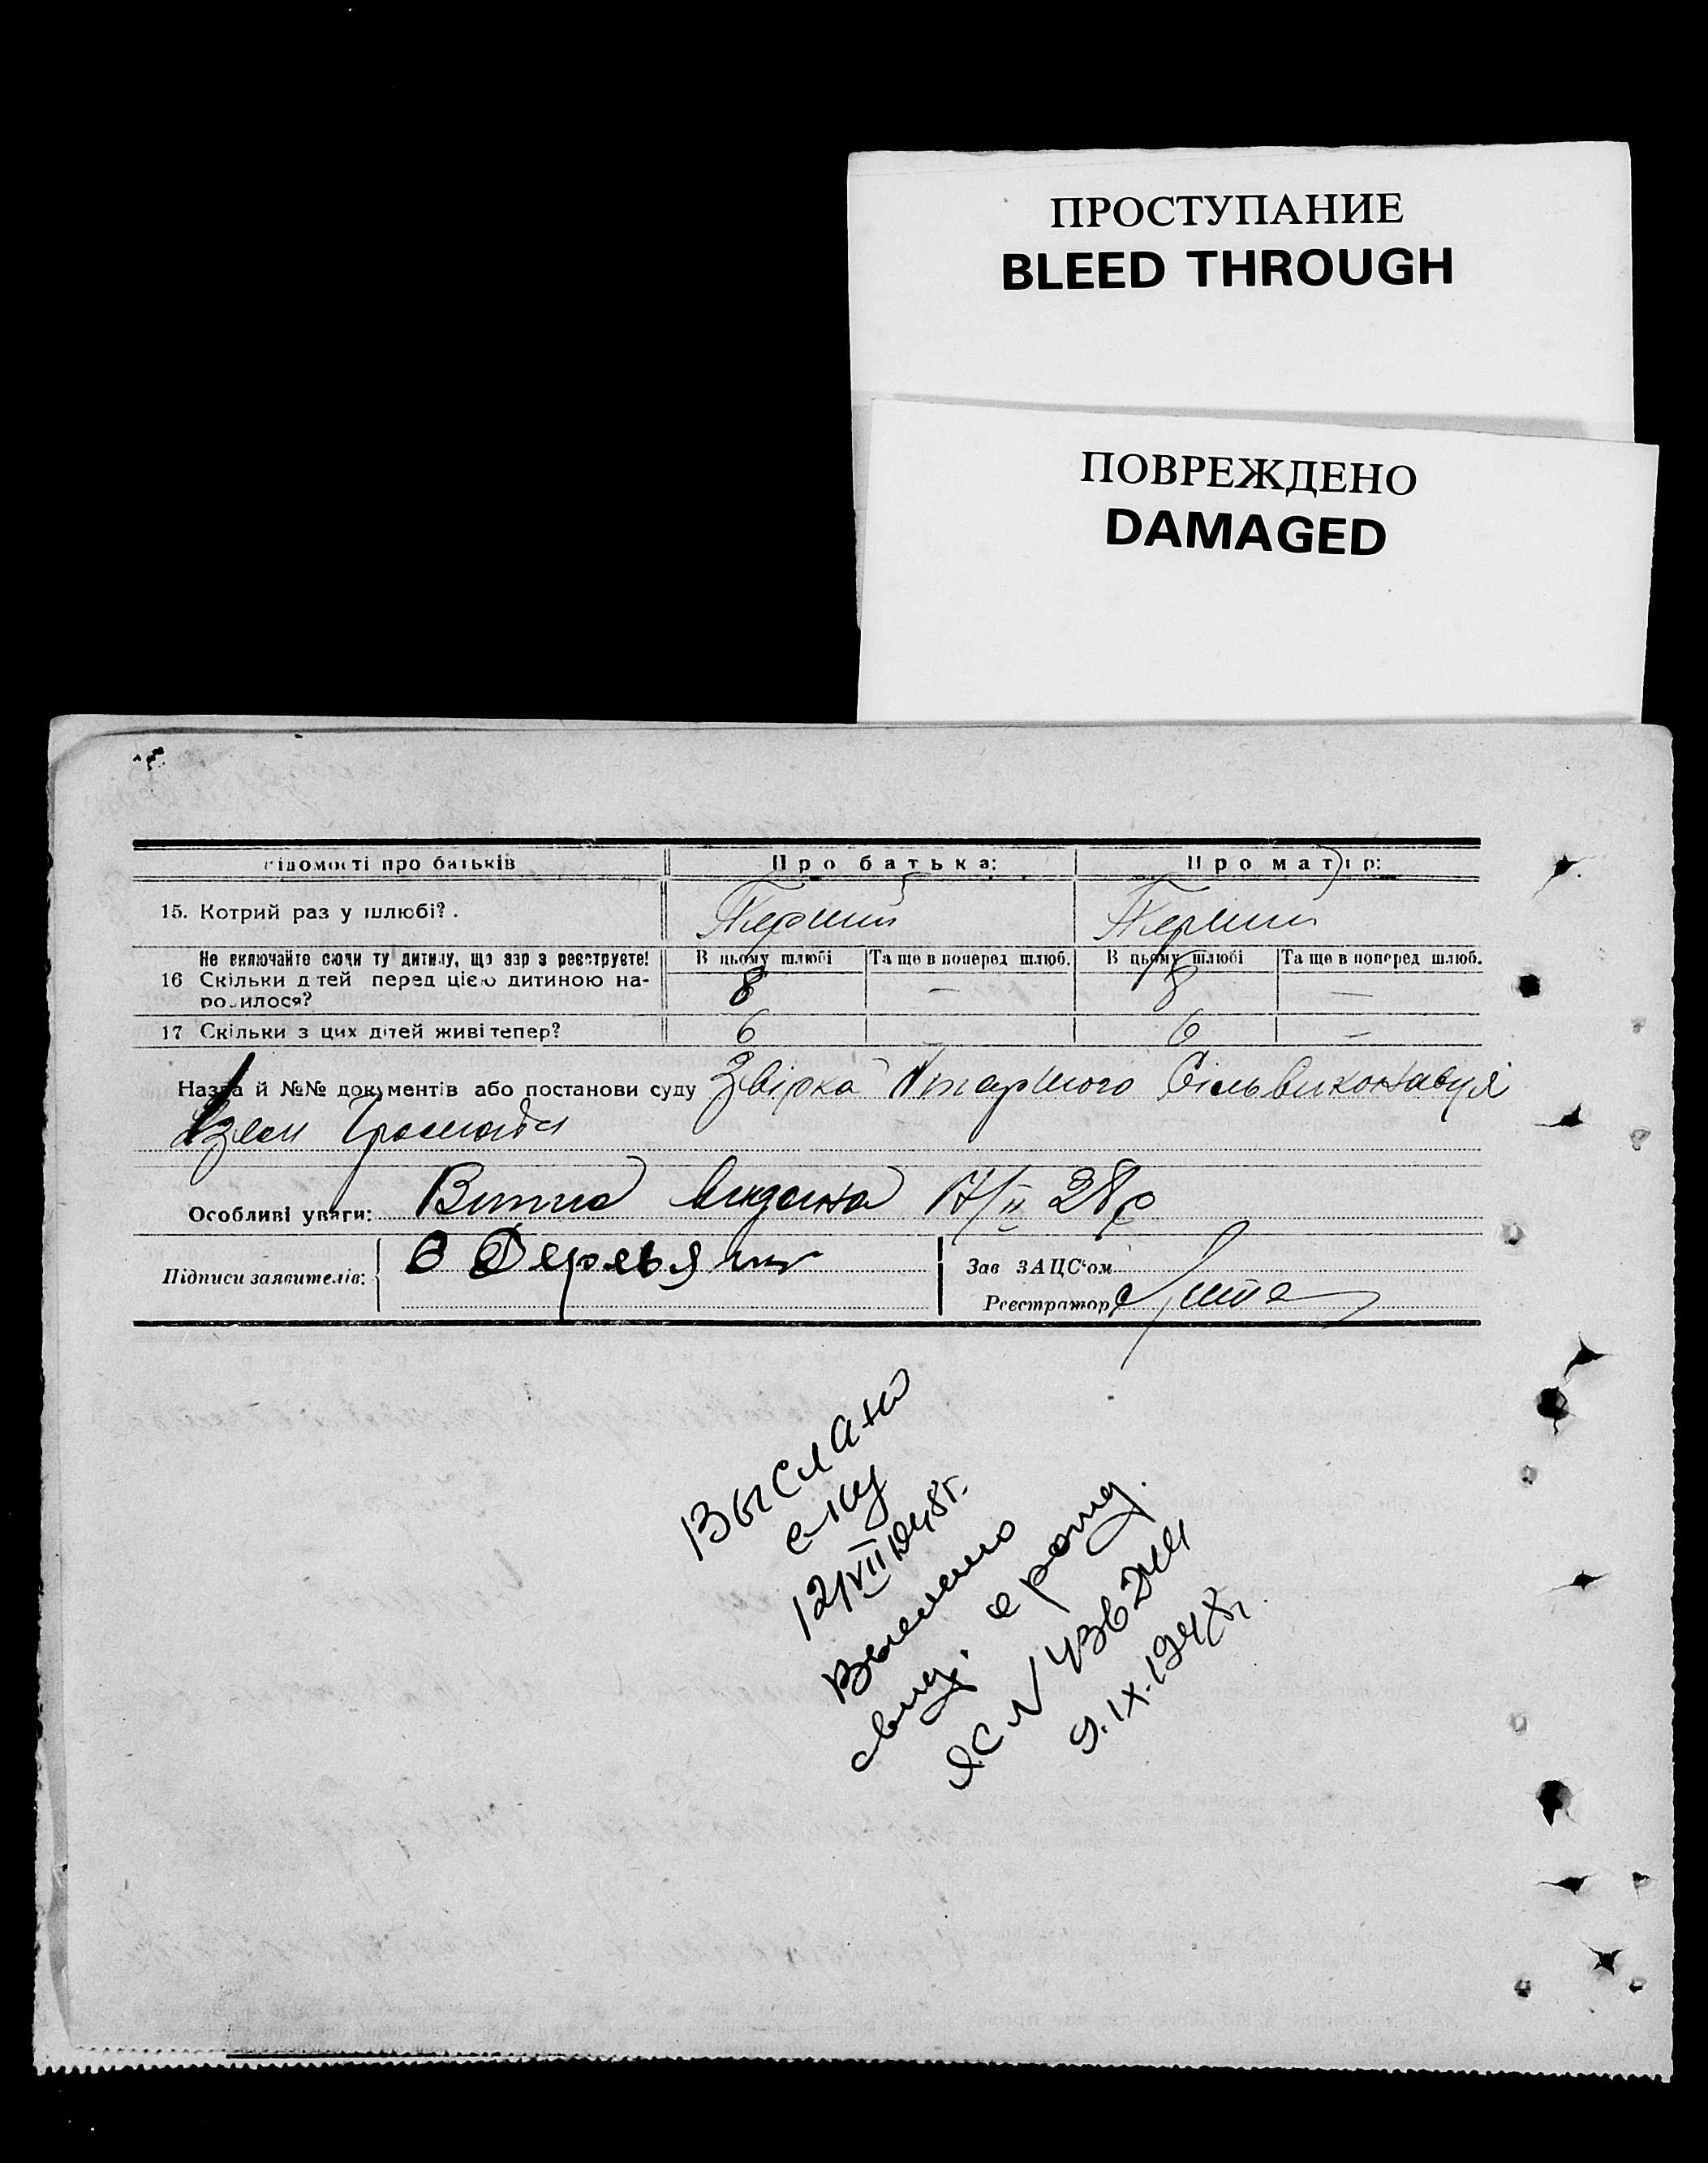 ПРОСТУПАНИЕ
BLEED THROUGH
ПОВРЕЖДЕНО
DAMAGED
відомості про батьків Про батька: Про матір:
15. Котрий раз у шлюбі? Перший Перший
Не включайте сюди ту дитину, що зар з реєструєте! В цьому шлюбі Та ще в поперед шлюб. В цьому шлюбі Та ще в поперед шлюб.
16 Скільки дітей перед цією дитиною на- 8 — 8 —
родилося?
17 Скільки з цих дітей живі тепер? 6 — 6 —
Назва й №№ документів або постанови суду Звірка Сільвиконавця
Зем Громади
Особливі уваги: Витяг видана 17/II 28р
Підписи заявителів: Зав ЗАЦС'ом
Реєстратор
Выслано
12/VII 1948г.
Выслано
свид. о рожд.
ЯС N
9.IX.1948г.